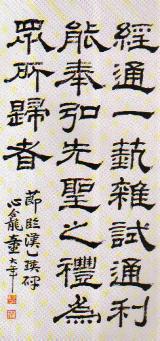 經通一埶雜試通利
能奉弘先聖之禮為
眾所歸者
節臨漢乙瑛碑
心龕童大年